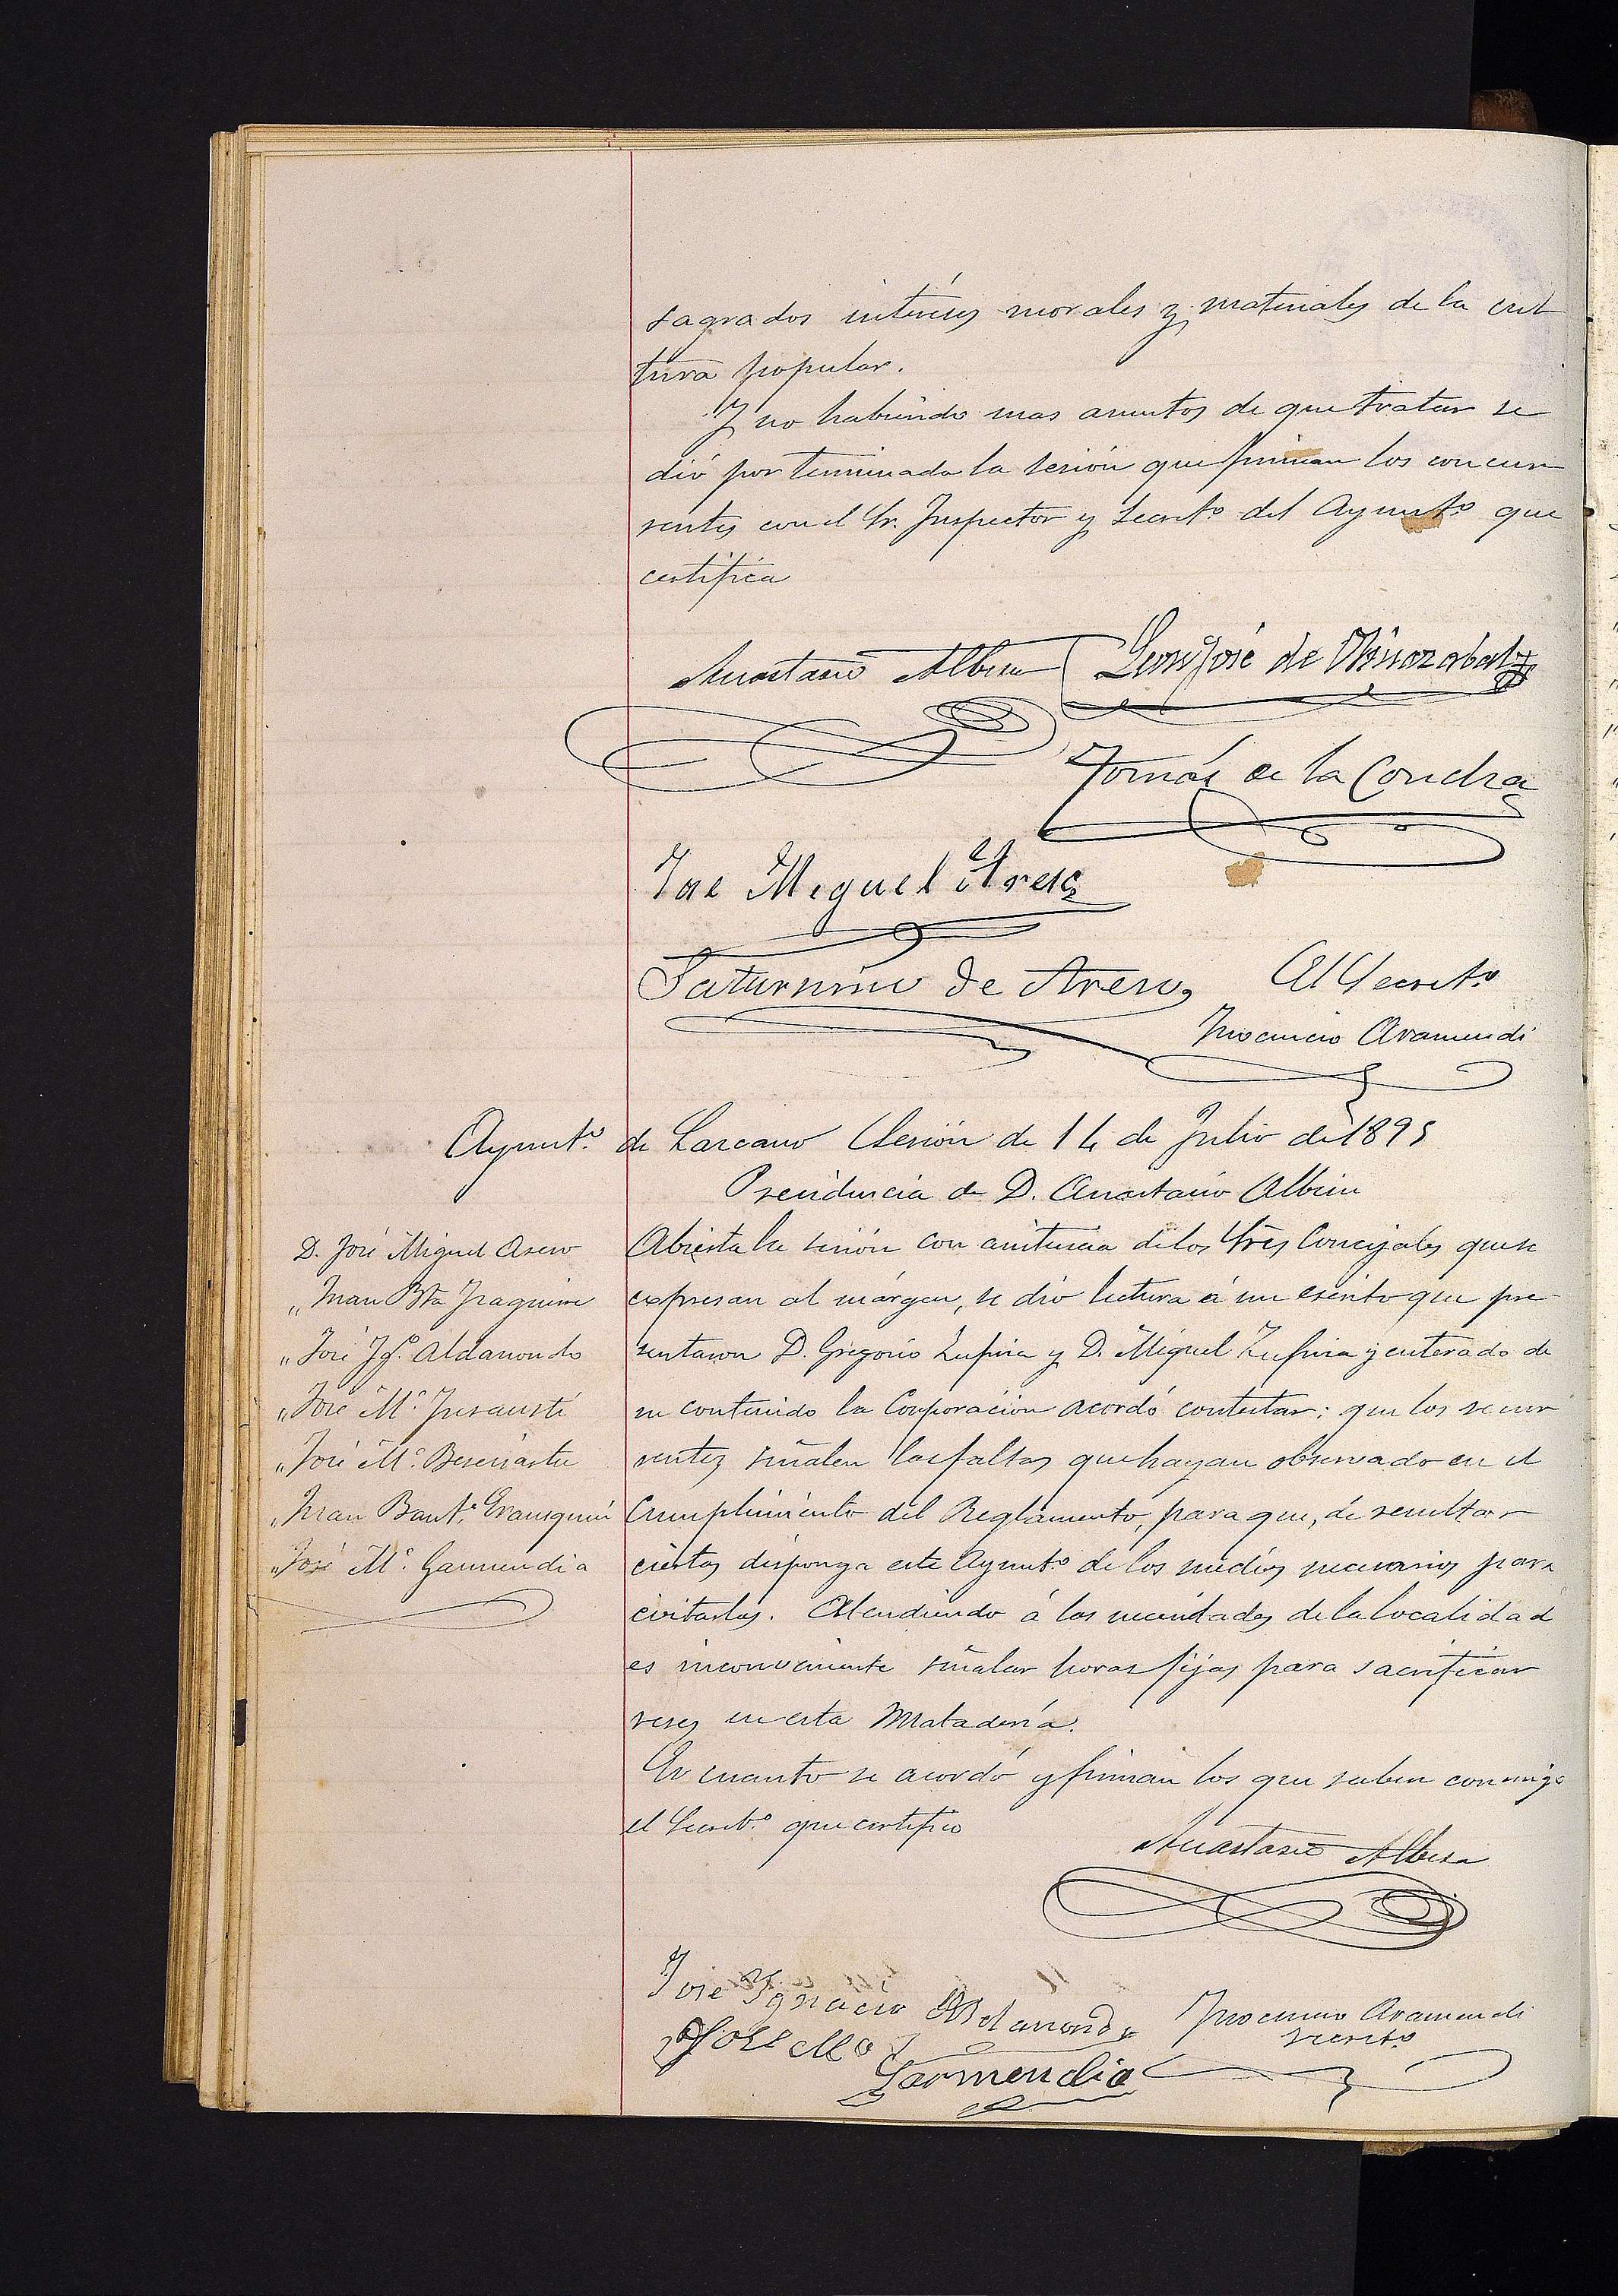 sagrados intéreses morales y materiales de la cul
tura popular.
Y no habiendo mas asuntos de que tratar se
dió por terminada la sesión que firman los concur
rentes con el Sr. Inspector y Secret.º del Aynut.º que
certifica
Anastasio Albisu León José de
Tomás de la Concha
José Miguel Aseno
Saturnino de Areno El Secret.º
Inocencio Aramendi
Ayunt.º de Lazcano Sesión de 14 de Julio de 1895
Presidencia de D. Anastasio Albisu
Abierta la sesión con asistencia de los Sres Concejales que se
expresan al márgen, se dio lectura á un escrito que pre-
sentaron D. Gregorio Zufiria y D. Miguel Zufiria y enterado de
su contenido la Corporación acordó contestar: que los recur
rentes señalen las faltas que hayan observado en el
Cumplimiento del Reglamento, para que, de resultar
ciertas disponga este Ayunt.º de los medios necesarios para
evitarlas. Atendiendo á las necesidades de la localidad
es inconveniente señalar horas fijas para sacrificar
reses en esta Matadería.
En cuanto se acordó y firman los que saben conmigo
el Secret.º que certifico
D. José Miguel Aseno
" Juan Bta
" José Ig.º Aldanondo
" José M.ª Insausti
" José M.ª
" Juan Baut.ª
" José M.ª Garmendia
Anastasio Albisu
José Ygnacio Aldanondo
Inocencio Aramendi
Secret.º
José Ma
Garmendia